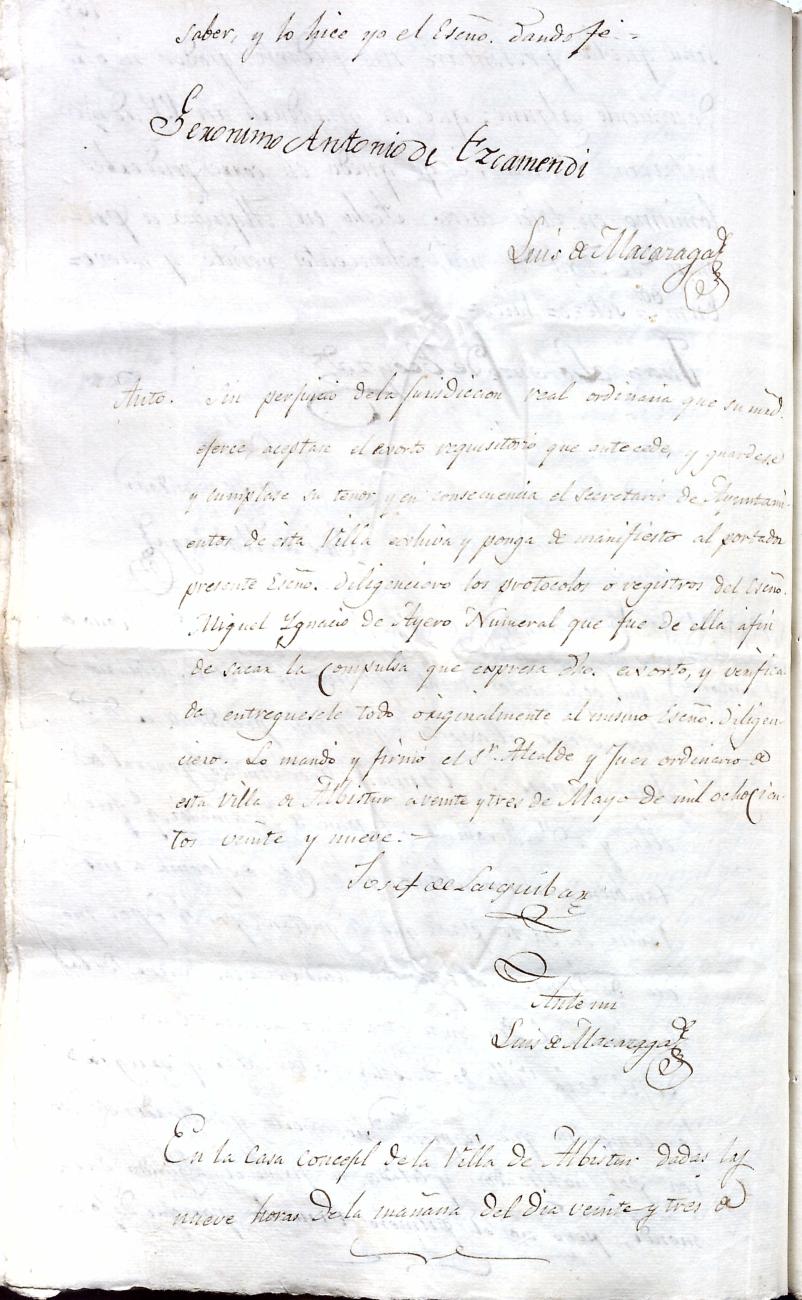 saber, y lo hice yo el Esño. dando fe.=
Geronimo Antonio de Ezcamendi
Luis de Macazaga
Auto. Sin perjuicio de la Jurisdiccion real ordinaria que su mrd.
ejerce, aceptase el exorto requisitorio que antecede, y guardese
y cumplase su tenor, y en consecuencia el secretario de Ayuntami-
entos de esta Villa exhiva y ponga de manifiesto al portador
presente Esño. Diligenciero los protocolos o registros del Esño.
Miguel Ygnacio de Ayero Numeral que fue de ella afin
de sacar la compulsa que expresa dho. exorto, y verifica-
da entreguesele todo originalmente al mismo Esño. Diligen-
ciero. Lo mandó y firmó el Sr. Alcalde y Juez ordinario de
esta Villa de Albistur á veinte y tres de Mayo de mil ochocien-
tos veinte y nueve.=
Josef de Larquibar
Ante mi
Luis de Macazaga
En la Casa concejil de la Villa de Albistur dadas las
nueve horas de la mañana del dia veinte y tres de